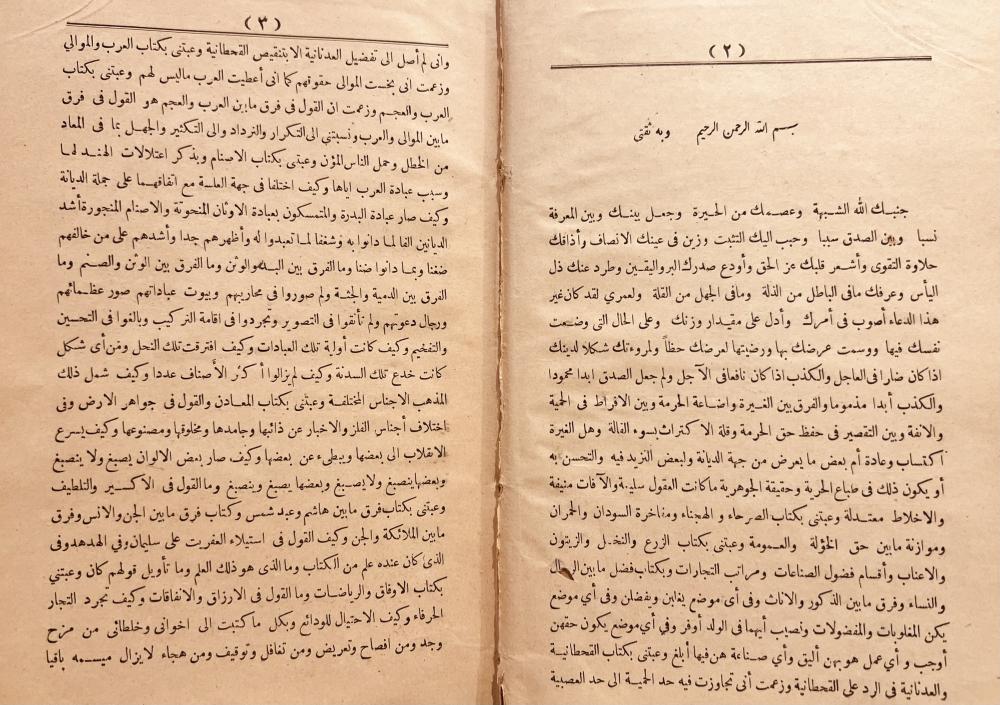 (٢)
بسم الله الرحمن الرحيم وبه ثقتى
جنبك الله الشبهة وعصمك من الحيرة وجعل بينك وبين المعرفة
نسبا وبين الصدق سببا وحبب اليك التثبت وزين فى عينك الانصاف وأذاقك
حلاوة التقوى وأشعر قلبك عز الحق وأودع صدرك البرواليقين وطرد عنك ذل
اليأس وعرفك مافى الباطل من الذلة ومافى الجهل من القلة ولعمري لقد كان غير
هذا الدعاء أصوب فى أمرك وأدل على مقدار وزنك وعلى الحال التى وضعت
نفسك فيها ووسمت عرضك بها ورضيتها لعرضك حظاً ولمروءتك شكلا لدينك
اذا كان ضارا فى العاجل والكذب اذا كان نافعا فى الآجل ولم جعل الصدق ابدا محمودا
والكذب أبدا مذموما والفرق بين الغيرة واضاعة الحرمة وبين الافراط فى الحمية
والانفة وبين التقصير فى حفظ حق الحرمة وقلة الاكتراث بسوء القالة وهل الغيرة
اكتساب وعادة أم بعض ما يعرض من جهة الديانة ولبعض التزيد فيه والتحسن به
أو يكون ذلك فى طباع الحرية وحقيقة الجوهرية ما كانت العقول سليمة والآفات منيفة
والاخلاط معتدلة وعبتنى بكتاب الصرحاء و الهجناء ومفاخرة السودان والحمران
وموازنة مابين حق الخؤلة والعمومة وعبتنى بكتاب الزرع والنخل والزيتون
والاعناب وأقسام فضول الصناعات ومراتب التجارات وبكتاب فضل مابين الرجال
والنساء وفرق مابين الذكور والاناث وفى أى موضع يغلبن ويفضلن وفى أي موضع
يكن المغلوبات والمفضولات ونصيب أيهما فى الولد أوفر وفي أي موضع يكون حقهن
أوجب و أي عمل هو بهن أليق وأي صناعة هن فيها أبلغ وعبتنى بكتاب القحطانية
والعدنانية فى الرد على القحطانية وزعمت أنى تجاوزت فيه حد الحمية الى حد العصبية
(٣)
وانى لم أصل الى تفضيل العدنانية الا بتنقيص القحطانية وعبتنى بكتاب العرب والموالي
وزعمت انى بخست الموالى حقوقهم كما انى أعطيت العرب ماليس لهم وعبتنى بكتاب
العرب والعجم وزعمت ان القول فى فرق مابين العرب والعجم هو القول فى فرق
مابين الموالى والعرب ونسبتني الى التكرار والترداد والى التكثير والجهل بما فى المعاد
من الخطل وحمل الناس المؤن وعبتنى بكتاب الاصنام وبذكر اعتلالات الهند لها
وسبب عبادة العرب اياها وكيف اختلفا فى جهة العلة مع اتفاقهما على جملة الديانة
وكيف صار عباد البدرة والمتمسكون بعبادة الاوثان المنحوتة والاصنام المنجورة أشد
الديانين الفا لما دانوا به وشغفا لما تعبدوا له وأظهرهم جدا وأشدهم على من خالفهم
ضغنا وبما دانوا ضنا وما الفرق بين البد والوثن وما الفرق بين الوثن والصنم وما
الفرق بين الدمية والجثة ولم صوروا فى محاريبهم وبيوت عباداتهم صور عظمائهم
ورجال دعوتهم ولم تأنقوا فى التصوير وتجردوا فى اقامة التركيب وبالغوا فى التحسين
والتفخيم وكيف كانت أولية تلك العبادات وكيف افترقت تلك النحل ومن أى شكل
كانت خدع تلك السدنة وكيف لم يزالوا أكثر الأصناف عددا وكيف شمل ذلك
المذهب الاجناس المختلفة وعبتنى بكتاب المعادن والقول فى جواهر الارض وفى
اختلاف أجناس الفلز والاخبار عن ذائبها وجامدها ومخلوقها ومصنوعها وكيف يسرع
الانقلاب الى بعضها ويبطىء عن بعضها وكيف صار بعض الالوان يصبغ ولا ينصبغ
وبعضها ينصبغ ولا يصبغ وبعضها يصبغ وينصبغ وما القول فى الاكسير والتلطيف
وعبتنى بكتاب فرق مابين هاشم وعبد شمس وكتاب فرق مابين الجن والانس وفرق
مابين الملائكة والجن وكيف القول فى استيلاء العفريت على سليمان وفي الهدهد وفى
الذى كان عنده علم من الكتاب وما الذى هو ذلك العلم وما تأويل قولهم كان وعبتني
بكتاب الاوفاق والرياضات وما القول فى الارزاق والانفاقات وكيف تجرد التجار
الحرفاء وكيف الاحتيال للودائع وبكل ما كتبت الى اخوانى وخلطائى من مزح
وجد ومن افصاح وتعريض ومن تغافل وتوقيف ومن هجاء لايزال ميسمه باقيا